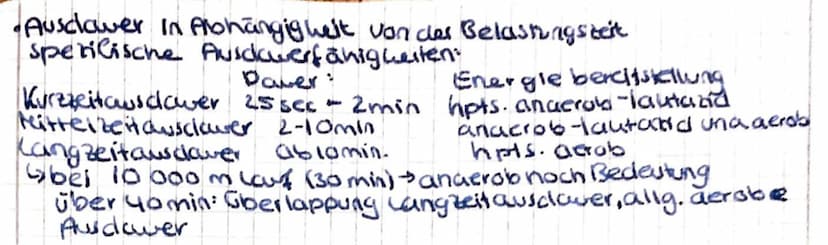 • Ausdauer in Abhängigkeit von der Belastungszeit
spezifische Ausdauerfähigkeiten:
Dauer: Energiebereitstellung
Kurzzeitausdauer 25 sec - 2min hpts. anaerob-laktazid
Mittelzeitausdauer 2-10min anaerob-laktazid und aerob
Langzeitausdauer ab 10min. hpts. aerob
↳ bei 10 000 m Lauf (30 min) → anaerob noch Bedeutung
über 40 min: Überlappung Langzeitausdauer, allg. aerobe
Ausdauer